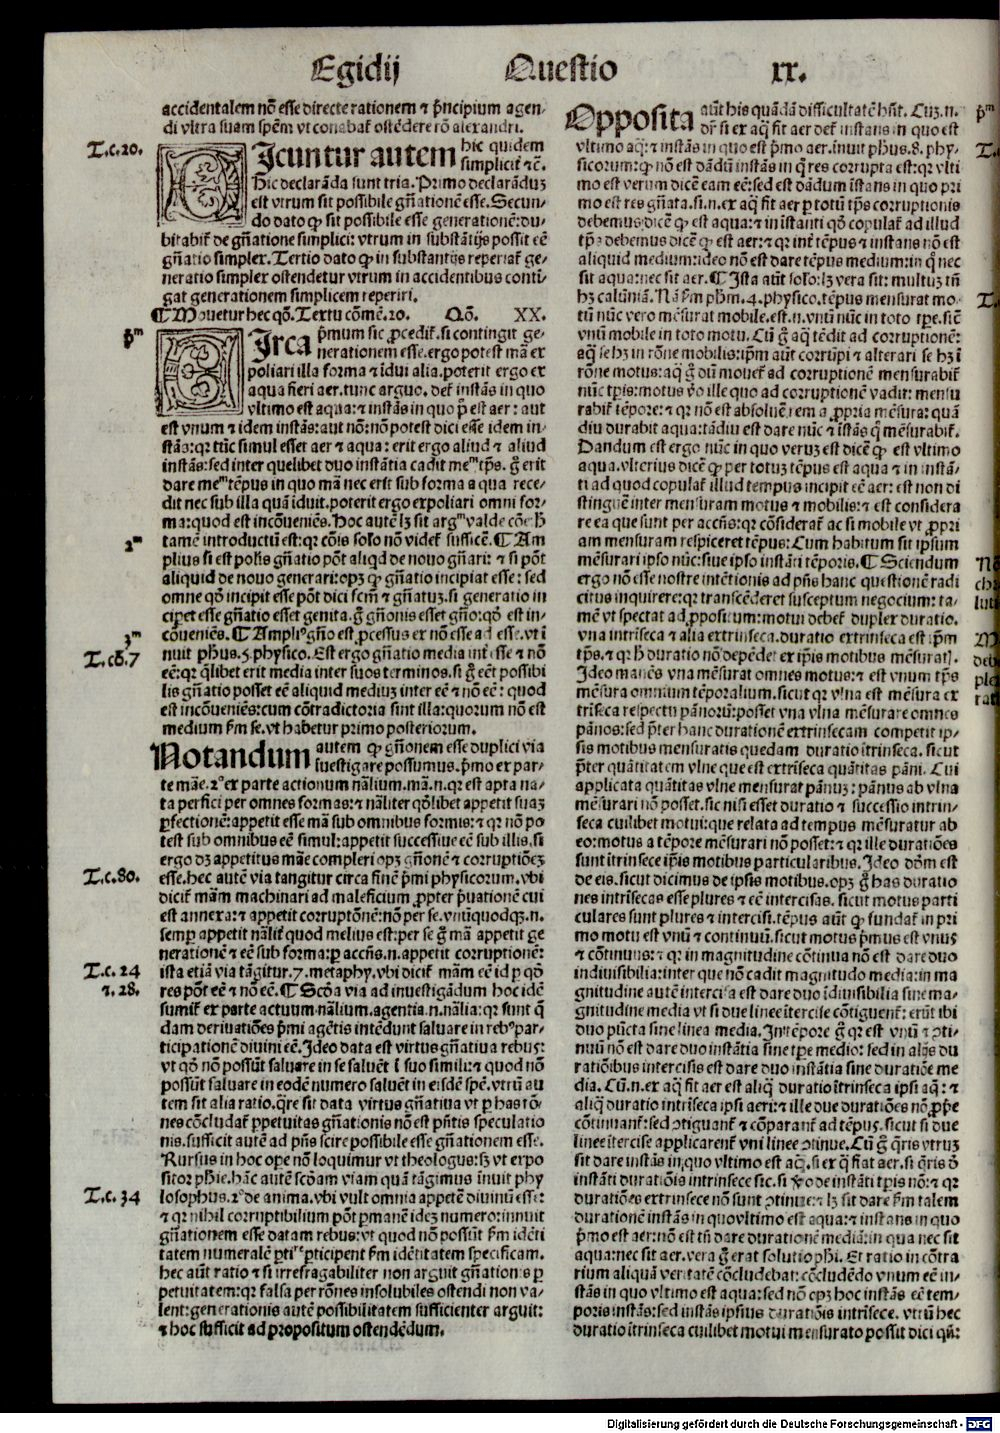 Egidij Questio xx.
accidentalem nõ esse directe rationem ⁊ p̃ncipium agen-
di vltra suam spẽm: vt conabat᷑ ostẽdere rõ alexandri.
T.c.20.
Icuntur autem hic quidem
simplicit᷑ ⁊c̃.
Hic declarãda sunt tria. Primo declarãduꝫ
est vtrum sit possibile gñationẽ esse. Secun-
do dato qꝙ sit possibile esse generationẽ: du-
bitabit᷑ de gñatione simplici: vtrum in substãtijs possit eẽ
gñatio simplex. Tertio dato qꝙ in substantijs reperiat᷑ ge-
neratio simplex ostendetur vtrum in accidentibus conti-
gat generationem simplicem reperiri.
¶ Mouetur hec qõ. Textu cõmẽ. 20. Qõ. XX.
p̃ᵐ
Irca p̃mum sic ꝓcedit᷑. si contingit ge-
nerationem esse. ergo potest mã ex
poliari illa forma ⁊ idui alia. poterit ergo ex
aqua fieri aer. tunc arguo. det᷑ instãs in quo
vltimo est aqua: ⁊ instãs in quo p̃ est aer: aut
est vnum ⁊ idem instãs: aut nõ: nõ potest dici esse idem in-
stãs: qꝛ tũc simul esset aer ⁊ aqua: erit ergo aliud ⁊ aliud
instãs: sed inter quelibet duo instãtia cadit meᵐ tp̃s. g̃ erit
dare meᵐ tẽpus in quo mã nec erit sub forma a qua rece-
dit nec sub illa quã iduit. poterit ergo expoliari omni for-
ma: quod est incõueniẽs. Hoc autẽ lꝫ sit argᵐ valde cõe: h̃
2ᵐ
tamẽ introductũ est: qꝛ cõis solo nõ videt᷑ sufficẽ. ¶ Am
plius si est poss̃ gñatio põt aliqd de nouo gñari: ⁊ si põt
aliquid de nouo generari: opꝫ qꝙ gñatio incipiat esse: sed
omne qõ incipit esse põt dici fcm̃ ⁊ gñatuꝫ. si generatio in
cipet esse gñatio esset genita. g̃ gñonis esset gño: qõ est in-
3ᵐ
cõueniẽs. ¶ Ampliꝰ gño est ꝓcessus ex nõ esse ad esse. vt ĩ
T.cõ.7
nuit pħus. 5. physico. Est ergo gñatio media int᷑ esse ⁊ nõ
eẽ: qꝛ q̃libet erit media inter suos terminos. si g̃ eẽt possibi
lis gñatio posset eẽ aliquid mediuꝫ inter eẽ ⁊ nõ eẽ: quod
est incõueniẽs: cum cõtradictoria sint illa: quorum nõ est
medium ẜm se. vt habetur primo posteriorum.
Notandum autem qꝙ gñonem esse duplici via
iuestigare possumus. p̃mo ex par-
te mãe. 2ꝰ ex parte actionum nãlium. mã. n. qꝛ est apta na-
ta perfici per omnes formas: ⁊ nãliter qõlibet appetit suaꝫ
ꝑfectionẽ: appetit esse mã sub omnibus formis: ⁊ qꝛ nõ po
test sub omnibus eẽ simul: appetit successiue eẽ sub illis. si
ergo dꝫ appetitus mãe compleri opꝫ gñonẽ ⁊ corruptiõeꝫ
T.c.80.
esse. hec autẽ via tangitur circa finẽ p̃mi physicorum. vbi
dicit᷑ mãm machinari ad maleficium ꝓpter p̃uationẽ cui
est annexa: ⁊ appetit corruptõnẽ: nõ per se. vnũquodqꝫ. n.
semꝑ appetit nãlit᷑ quod melius est: per se g̃ mã appetit ge
nerationẽ ⁊ eẽ sub forma: ꝑ accñs. n. appetit corruptionẽ:
T.c.24
ista etiã via tãgitur. 7. metaphy. vbi dicit᷑ mãm eẽ id ꝑ qõ
⁊.28.
res põt eẽ ⁊ nõ eẽ. ¶ Scõa via ad inuestigãdum hoc idẽ
sumit᷑ ex parte actuum nãlium. agentia. n. nãlia: qꝛ sunt q̃
dam deriuatiões p̃mi agẽtis intẽdunt saluare in rebꝰ par-
ticipationẽ diuini eẽ. Ideo data est virtus gñatiua rebus:
vt qõ nõ possũt saluare in se saluẽt ĩ suo simili: ⁊ quod nõ
possũt saluare in eodẽ numero saluẽt in eisdẽ spẽ. vtrũ au
tem sit alia ratio. q̃re sit data virtus gñatiua vt ꝑ has rõ-
nes cõcludat᷑ ꝑpetuitas gñationis nõ est p̃ntis speculatio
nis. sufficit autẽ ad p̃ns scire possibile esse gñationem esse.
Rursus in hoc oꝑe nõ loquimur vt theologus: sꝫ vt expo
sitor pħie. hãc autẽ scõam viam quã tãgimus inuit phy
T.c.34
losophus. 2º de anima. vbi vult omnia appetẽ diuinũ esse:
⁊ qꝛ nihil corruptibilium põt ꝑmanẽ ideꝫ numero: innuit
gñationem esse datam rebus: vt quod nõ possũt ẜm idẽti
tatem numeralẽ ꝑtiʳᵉ ꝑticipent ẜm idẽtitatem specificam.
hec aũt ratio ⁊ si irrefragabiliter non arguit gñationis ꝑ
petuitatem: qꝛ falsa per rõnes insolubiles ostendi non va-
lent: generationis autẽ possibilitatem sufficienter arguit:
⁊ hoc sufficit ad propositum ostendẽdum.
Opposita aũt his quãdã difficultatẽ hñt. Cuꝫ. n.
p̃ᵐ
dr̃ si ex aq̃ fit aer det᷑ instans in quo est
T.
vltimo aq̃: ⁊ instãs in quo est p̃mo aer. inuit pħus. 8. phy-
sicorum: qꝙ nõ est dãdũ instãs in q̃ res corrupta est: qꝛ vlti
mo est verum dicẽ eam eẽ: sed est dãdum ĩstans in quo pri
mo est res gñata. si. n. ex aq̃ fit aer ꝑ totũ tp̃s corruptionis
debemus dicẽ qꝙ est aqua: ⁊ in istanti qõ copulat᷑ ad illud
tp̃s debemus dicẽ qꝙ est aer: ⁊ qꝛ int᷑ tẽpus ⁊ instans nõ est
aliquid medium: ideo nõ est dare tẽpus medium: in q̃ nec
sit aqua: nec sit aer. ¶ Ista aũt solo: lꝫ vera sit: multuꝫ tñ
T.
hꝫ calũniã. Nã ẜm pħm. 4. physico. tẽpus mensurat mo-
tũ nũc vero mẽsurat mobile. est. n. vnũ nũc in toto tꝑe. sic̃
vnũ mobile in toto motu. Cũ g̃ aq̃ tẽdit ad corruptionẽ:
aq̃ se hꝫ in rõne mobilis: ip̃m aũt corrũpi ⁊ alterari se hꝫ ĩ
rõne motus: aq̃ g̃ dũ mouet᷑ ad corruptionẽ mensurabit᷑
nũc tp̃is: motus võ ille quo ad corruptionẽ vadit: mensu
rabit᷑ tẽpore: ⁊ qꝛ nõ est absoluẽ rem a ꝓpria mẽsura: quã
diu durabit aqua: tãdiu est dare nũc ⁊ ĩstãs q̃ mẽsurabit᷑.
Dandum est ergo nũc in quo veruꝫ est dicẽ qꝙ est vltimo
aqua. vlterius dicẽ qꝙ per totuꝫ tẽpus est aqua ⁊ in instã-
ti ad quod copulat᷑ illud tempus incipit eẽ aer: est non di
stinguẽ inter mensuram motus ⁊ mobilis: ⁊ est considera
re ea que sunt per accñs: qꝛ cõsiderat᷑ ac si mobile vt ꝓpri
am mensuram respiceret tẽpus: Cum habitum sit ipsum
mẽsurari ipso nũc: siue ipso instãti tẽporis. ¶ Sciendum
Nõ
ergo nõ esse nostre intẽtionis ad p̃ns hanc questionẽ radi
citus inquirere: qꝛ transcẽderet susceptum negocium: ta-
mẽ vt spectat ad ꝓpositum: motui debet᷑ duplex duratio.
vna intrĩseca ⁊ alia extrinseca. duratio extrinseca est ip̃m
tp̃s. ⁊ qꝛ h̃ duratio nõ depẽdet ex ip̃is motibus mẽsuratꝭ.
Ideo manẽs vna mẽsurat omnes motus: ⁊ est vnum tp̃s
mẽsura omnium tẽporalium. sicut qꝛ vlna est mẽsura ex
trĩseca respectu pãnorũ: posset vna vlna mẽsurare omnes
pãnos: sed p̃ter hanc durationẽ extrinsecam competit ip-
sis motibus mensuratis quedam duratio ĩtrinseca. sicut
p̃ter quãtitatem vlne que est extrĩseca quãtitas pãni. Cui
applicata quãtitas vlne mensurat pãnuꝫ: pãnus ab vlna
mẽsurari nõ posset. sic nisi esset duratio ⁊ successio intrin-
seca cuilibet motui: que relata ad tempus mẽsuratur ab
eo: motus a tẽpore mẽsurari non posset: ⁊ qꝛ ille duratiões
sunt ĩtrinsece ip̃is motibus particularibus. Ideo dõm est
de eis. sicut dicimus de ipsis motibus. opꝫ g̃ has duratio
nes intrĩsecas esse plures ⁊ eẽ intercisas. sicut motus parti
culares sunt plures ⁊ intercisi. tẽpus aũt qꝛ fundat᷑ in pri
mo motu est vnũ ⁊ continuũ. sicut motus p̃mus est vnus
⁊ cõtinuus: ⁊ qꝛ in magnitudine cõtinua nõ est dare duo
indiuisibilia: inter que nõ cadit magnitudo media: in ma
gnitudine autẽ intercisa est dare duo ĩdiuisibilia sine ma-
gnitudine media vt si due linee ĩtercise cõtiguent᷑: erũt ibi
duo pũcta sine linea media. In tẽpore g̃ qꝛ est vnũ ⁊ ꝯti-
nuũ nõ est dare duo instãtia sine tꝑe medio: sed in alijs du
ratiõibus intercisis est dare duo instãtia sine duratiõe me
dia. Cũ. n. ex aq̃ fit aer est aliq̃ duratio ĩtrinseca ipsi aq̃: ⁊
aliq̃ duratio intrĩseca ipsi aeri: ⁊ ille due duratiões nõ ꝓp̃e
cõtinuant᷑: sed ꝯtiguant᷑ ⁊ cõparant᷑ ad tẽpus. sicut si due
linee ĩtercise applicarent᷑ vni linee ꝯtinue. Cũ g̃ q̃ris vtruꝫ
sit dare instãs in quo vltimo est aq̃. si ex q̃ fiat aer. si q̃ris õ
instãti duratiõis intrinsece sic. si võ de instãti tp̃is nõ: ⁊ qꝛ
duratiões extrinsece nõ sunt ꝯtinue: ⁊ lꝫ sit dare ẜm talem
durationẽ instãs in quo vltimo est aqua: ⁊ instans in quo
p̃mo est aer: nõ est tñ dare durationẽ mediã: in qua nec sit
aqua: nec sit aer. vera g̃ erat solutio pħi. Et ratio in cõtra
rium aliquã veritatẽ cõcludebat: cõcludẽdo vnum eẽ in-
stãs in quo vltimo est aqua: sed nõ opꝫ hoc instãs eẽ tem-
poris instãs: sed instãs ipsius duratiõis intrĩsece. vtrũ hec
duratio ĩtrinseca cuilibet motui mensurato possit dici qũ:
Digitalisierung gefördert durch die Deutsche Forschungsgemeinschaft - DFG